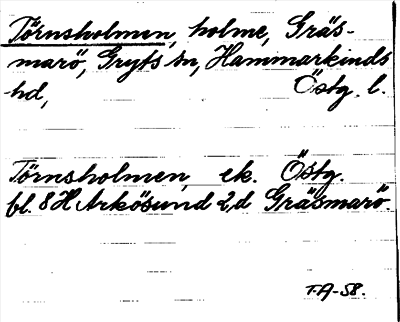 Törnsholmen, holme, Gräs-
marö, Gryts sn, Hammarkinds
hd, Östg. l.
Törnsholmen, ek. Östg.
bl. 8 H Arkösund 2,d Gräsmarö.
T.A-58.